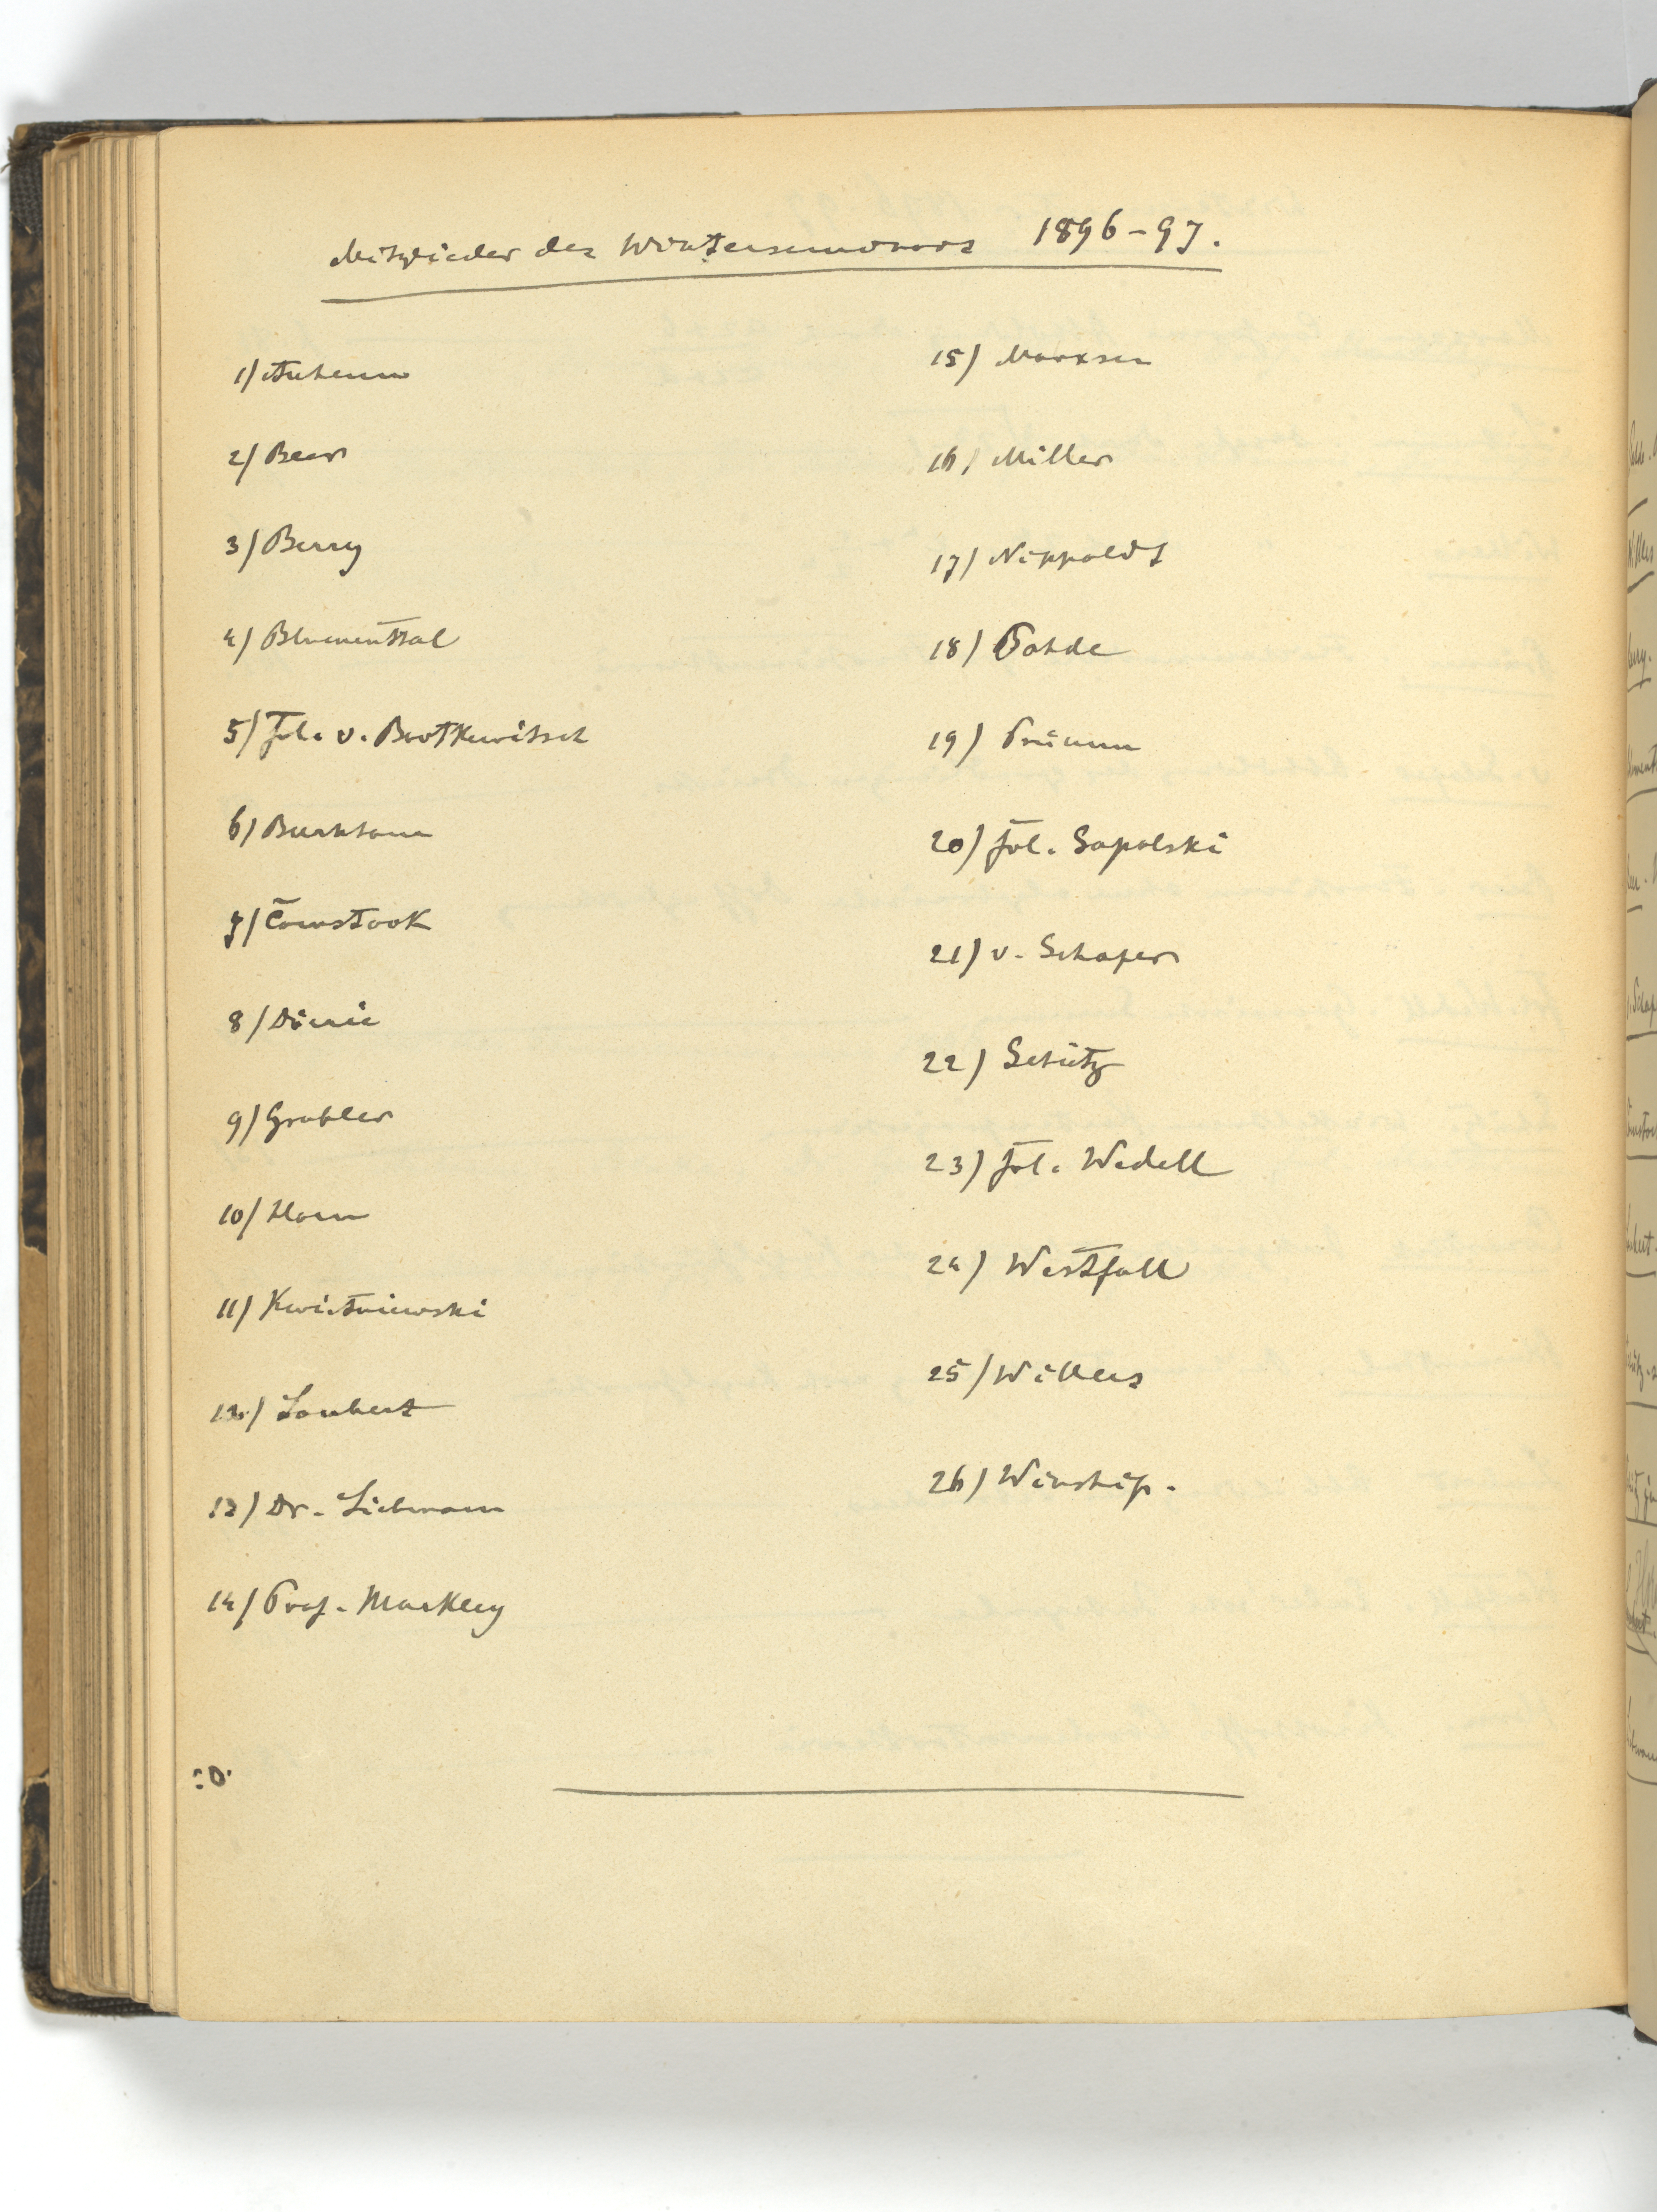 Mitglieder des Winterseminars 1896-97.
1)
2) Beer
3) Berry
4) Blumenthal
5) Frl. v. Bortkewitsch
6) Burkhom
7) Comstook
8)
9) Grabler
10) Horn
11) Kwietniewski
12) Laubert
13) Dr. Liebmann
14) Prof. Markley
15) Marxsen
16) Miller
17) Nippoldt
18) Pahde
19) Prümm
20) Frl. Sapolski
21) v. Schaper
22) Schütz
23) Frl. Wedell
24) Westfall
25) Willers
26) Winship.